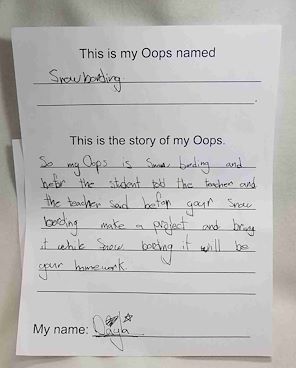 This is my Oops named
Snowbording.
This is the story of my Oops.
So my Oops is Snow bording and
befor the student told the teacher and
the teacher said befor gour Snow
bording make a project and bring
it while Snow bording it will be
your homework.
My name: Dayla